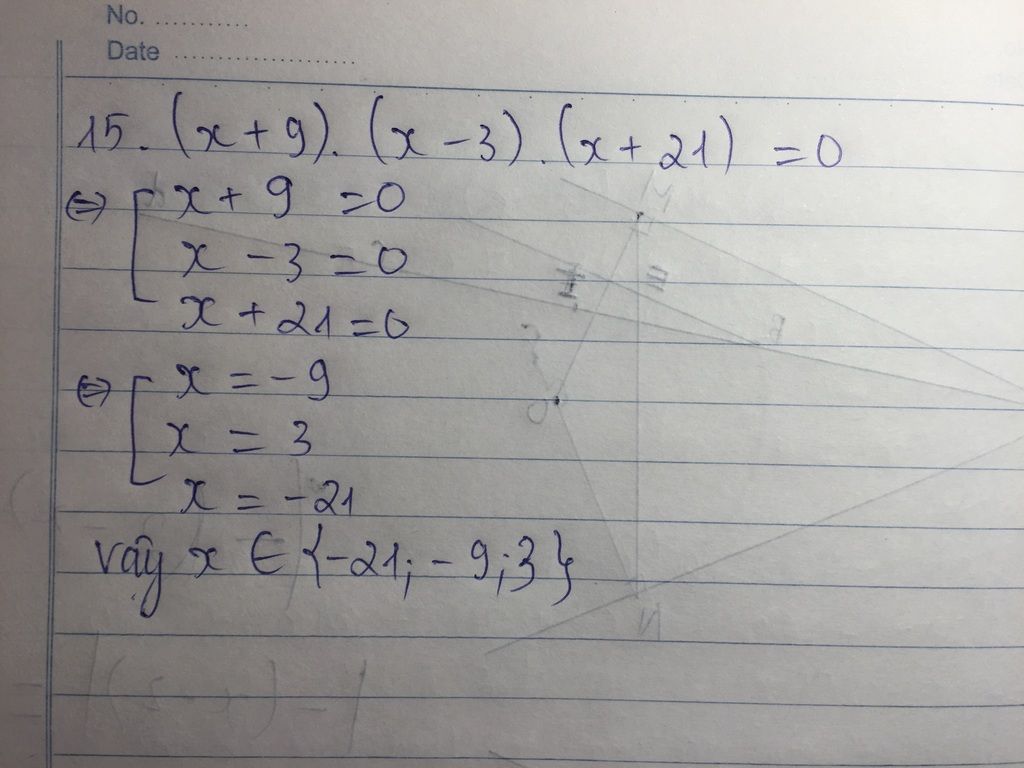 No. ............
Date ........................
15. (x + 9). (x - 3). (x + 21) = 0
⇔ [ x + 9 = 0
x - 3 = 0
x + 21 = 0
⇔ [ x = -9
x = 3
x = -21
Vậy x ∈ {-21; -9; 3}